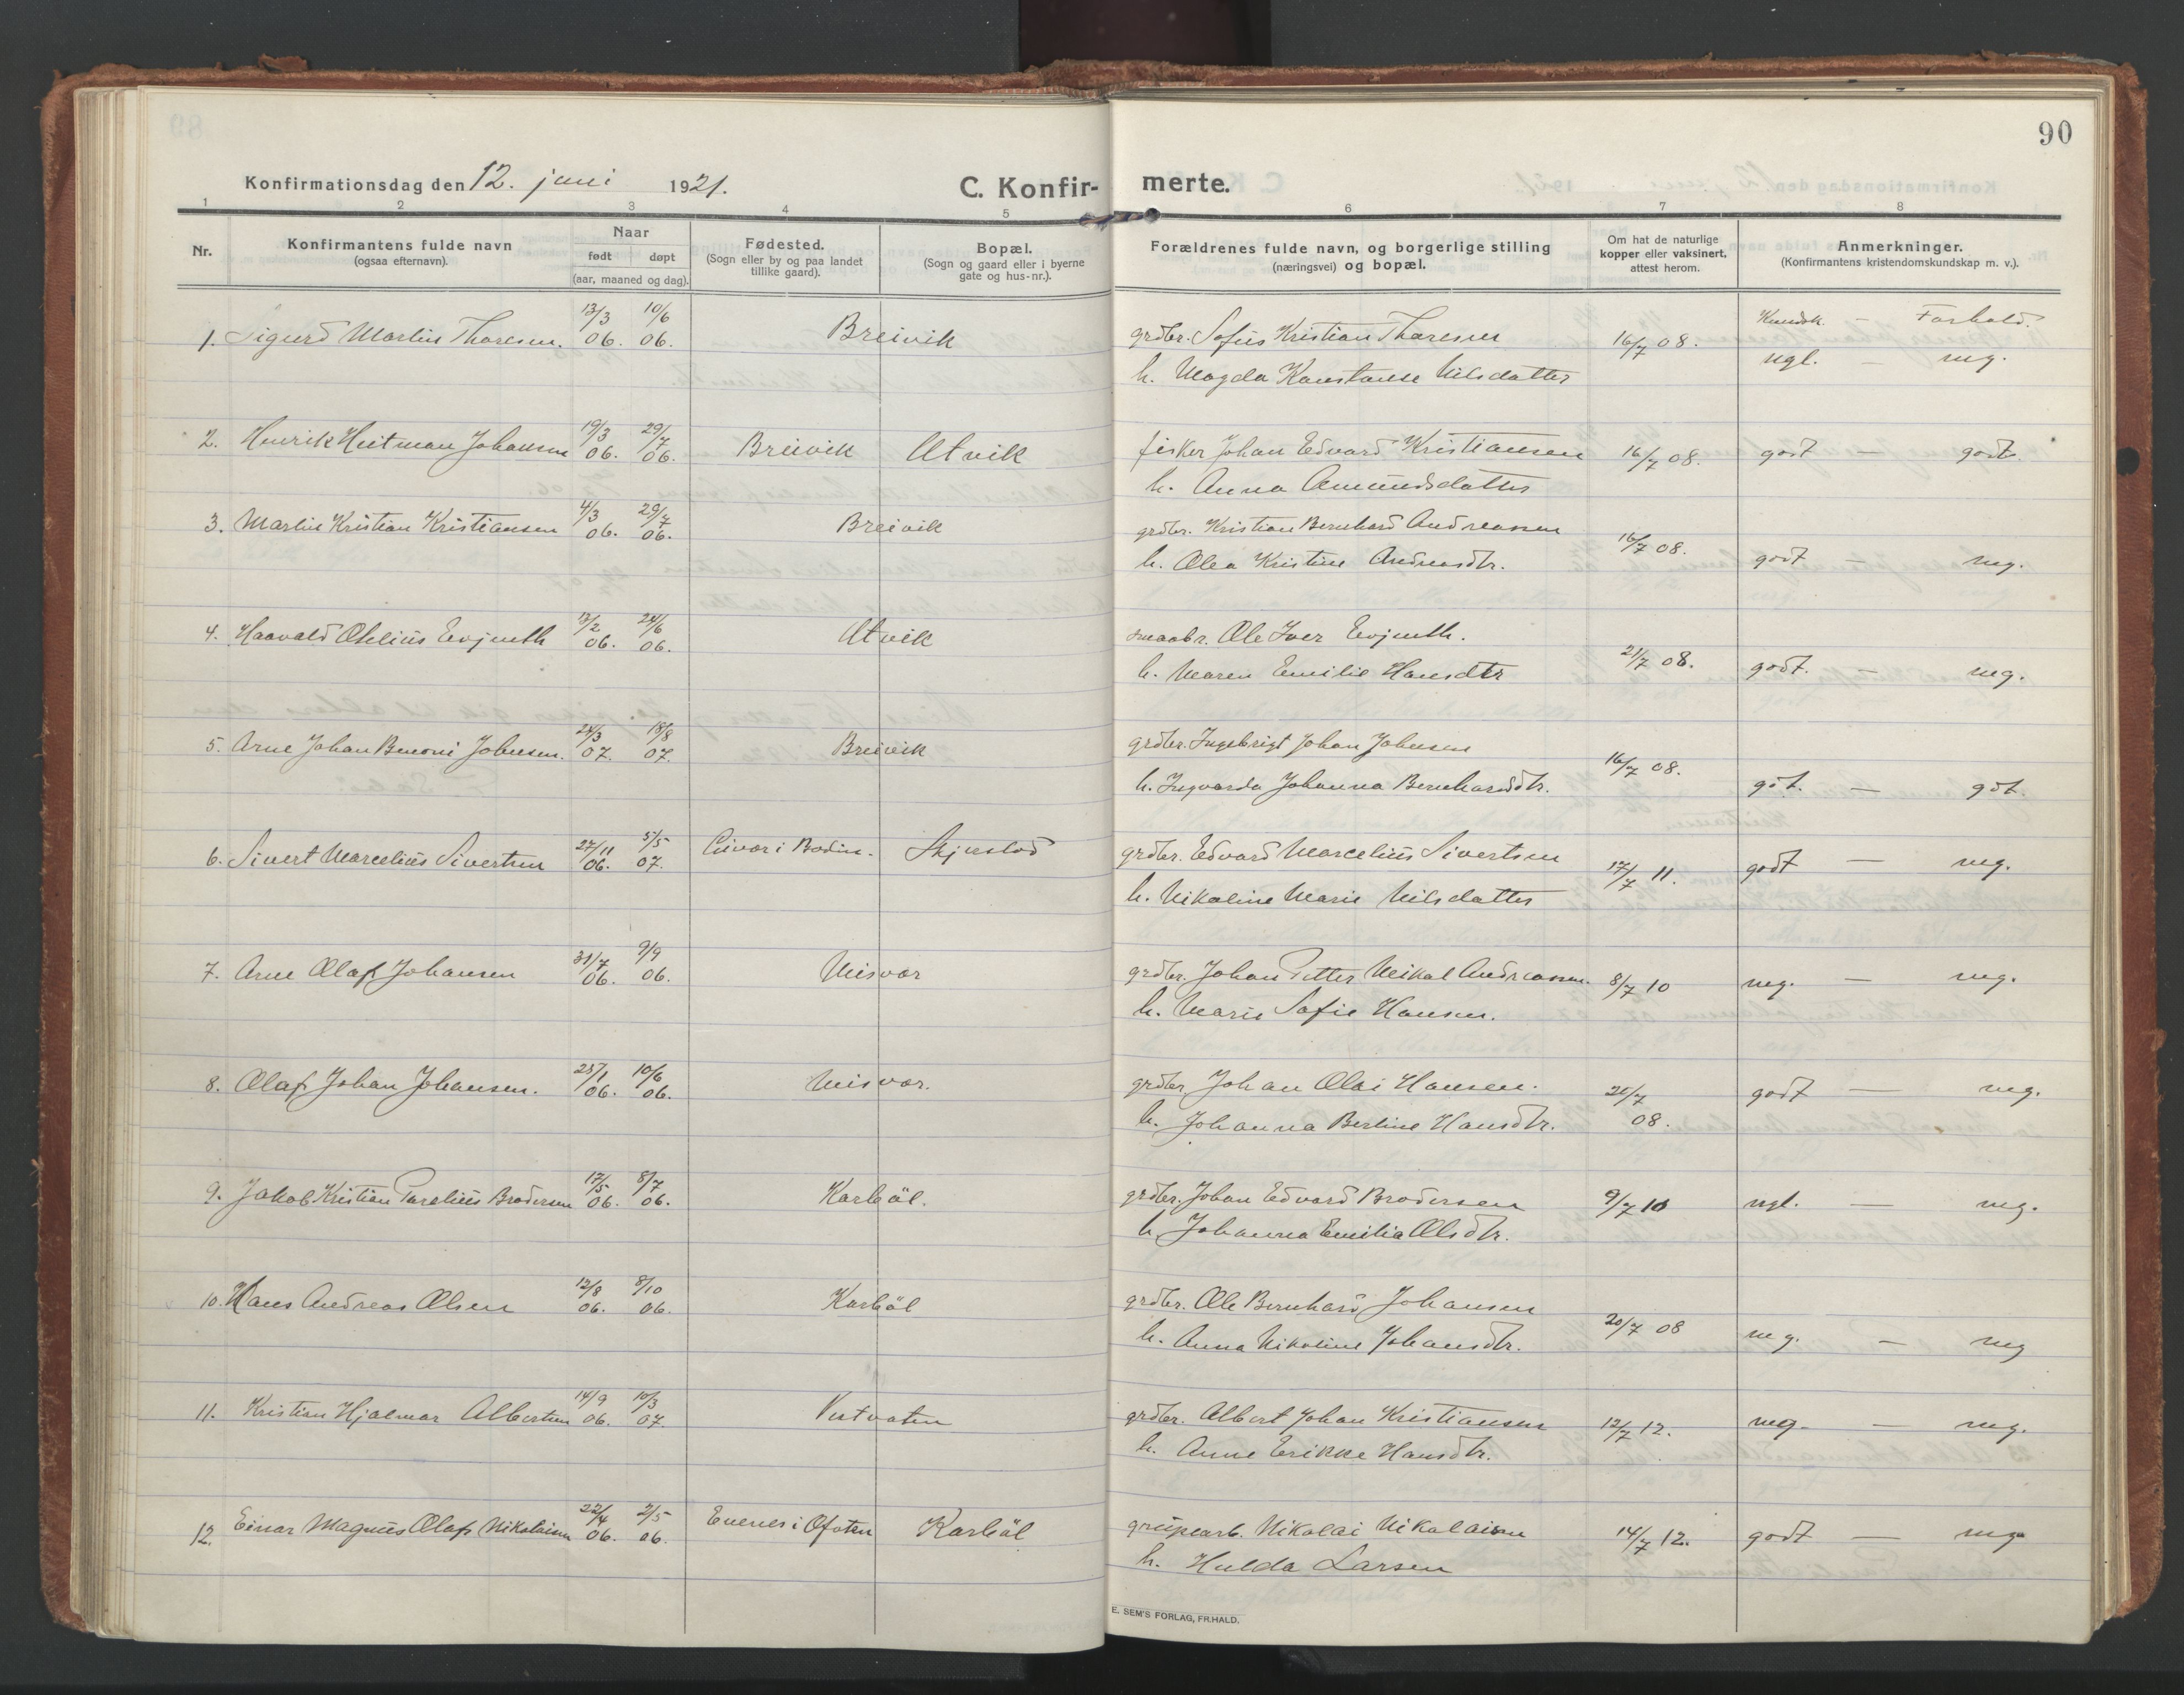 90
Konfirmationsdag den 12. juni 1921.
C. Konfir- merte.
1 2 3 4 5 6 7 8
Nr.
Konfirmantens fulde navn
(ogsaa efternavn).
Naar
født døpt
(aar, maaned og dag).
Fødested.
(Sogn eller by og paa landet
tillike gaard).
Bopæl.
(Sogn og gaard eller i byerne
gate og hus-nr.).
Forældrenes fulde navn, og borgerlige stilling
(næringsvei) og bopæl.
Om hat de naturlige
kopper eller vaksinert,
attest herom.
Anmerkninger.
(Konfirmantens kristendomskundskap m. v.).
13/3 10/6 Kundsk. - Forhold.
1. Sigurd Martin Thoresen. 06. 06. Breivik grdbr. Sofus Kristian Thoresen 16/7 08. ngl. - mg.
h. Magda Konstanse Nilsdatter
19/3 29/7
2. Henrik Heitman Johansen 06. 06. Breivik Utvik fisker Johan Edvard Kristiansen 16/7 08. godt - godt.
h. Anna Amundsdatter
4/3 29/7
3. Martin Kristian Kristiansen 06. 06. Breivik grdbr. Kristian Bernhard Andreassen
h. Olea Kristine Andreasdtr. 16/7 08. godt - mg.
13/2 24/6
4. Haavald Othelius Evjenth 06. 06. Utvik smaabr. Ole Iver Evjenth.
h. Maren Emilie Hansdtr 21/7 08. godt. - mg.
24/3 18/8
5. Arne Johan Benoni Johnsen. 07. 07. Breivik grdbr. Ingebrigt Johan Johnsen
h. Ingvarda Johanna Bernhardsdtr. 16/7 08. gdt. - gdt.
27/11 5/5
6. Sivert Marcelius Sivertsen 06. 07. i Bodin. Skjerstad grdbr. Edvard Marcelius Sivertsen 17/7 11. godt - mg.
h. Nikoline Marie Nilsdatter
31/7 9/9
7. Arne Olaf Johansen 06. 06. Misvær grdbr. Johan Petter Mikal Andreassen. 8/7 10 mg. - mg.
h. Marie Sofie Hansen.
25/1 10/6
8. Olaf Johan Johansen. 06. 06. Misvær. grdbr. Johan Olai Hansen. 20/7 08. godt - mg.
h. Johanna Berline Hansdtr.
17/5 8/7
9. Jakob Kristian Parelius Brodersen 06. 06. Karbøl. grdbr. Johan Edvard Brodersen 9/7 10 ngl. - mg.
h. Johanna Emilia Olsdtr.
12/8 8/10
10. Hans Andreas Olsen 06. 06. Karbøl grdbr. Ole Bernhard Johansen
h. Anna Nikoline Johansdtr. 20/7 08 mg. - mg
14/9 10/3
11. Kristian Hjalmar Albertsen 06. 07. Vestvatn grdbr. Albert Johan Kristiansen 12/7 12. mg. - mg.
h. Anne Erikke Hansdtr.
22/4 2/5
12. Einar Magnus Olaf Nikolaisen 06. 06. Evenes i Ofoten Karbøl grubearb. Nikolai Nikolaisen 14/7 12. godt - mg
h. Hulda Larsen
E. SEM'S FORLAG, FR.HALD.